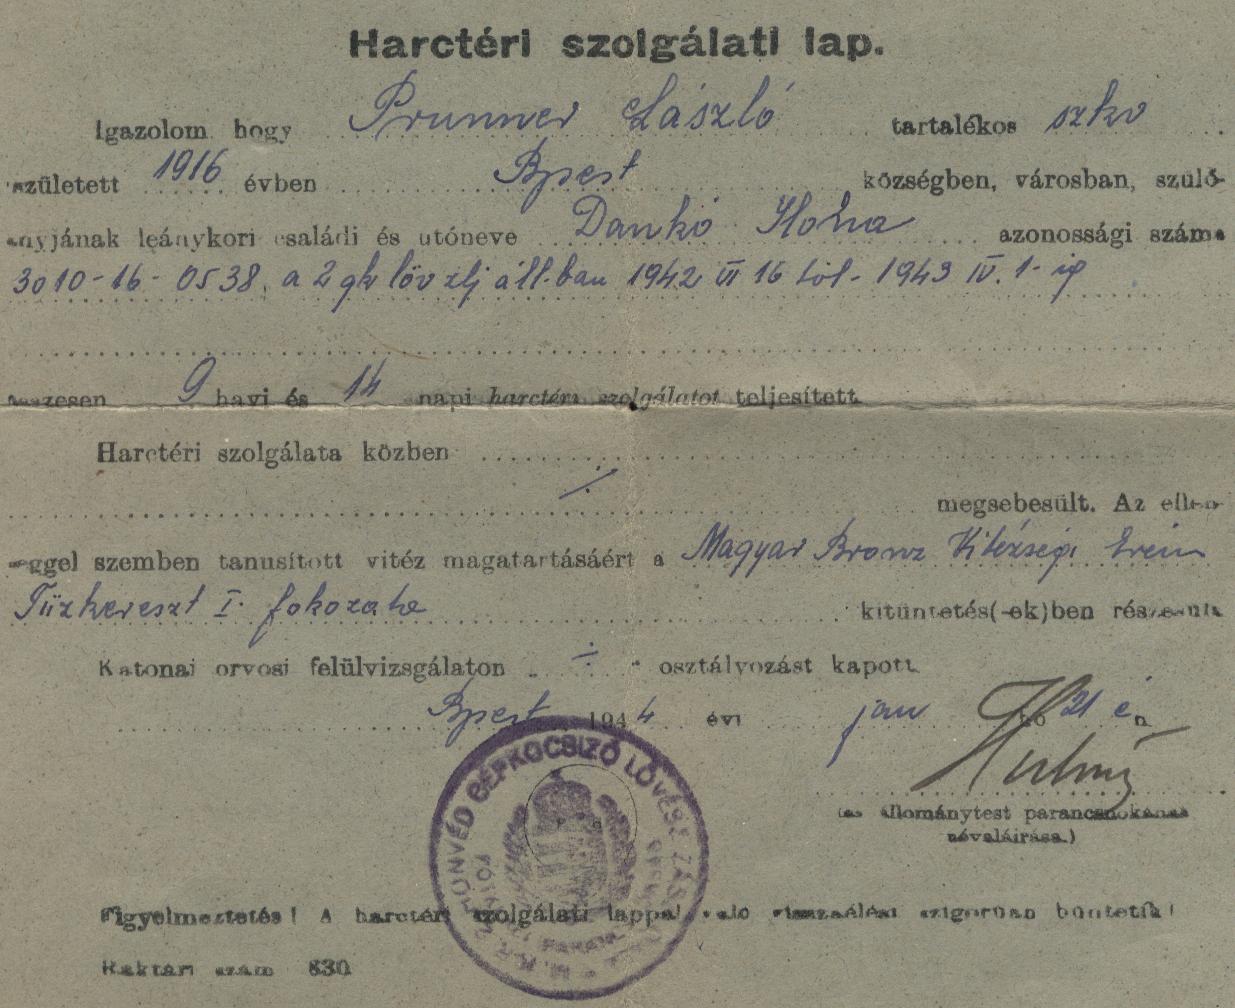 Harctéri szolgálati lap.
Igazolom hogy Prunner László tartalékos szkv
született 1916 évben Bpest községben, városban, szülő-
anyjának leánykori családi és utóneve Dankó Ilona azonossági száma
3010-16-0538. a 2 gk löv zlj áll.ban 1942 VI 16 tól - 1943 IV. 1-ig
összesen 9 havi és 14 napi harctéri szolgálatot teljesített
Harctéri szolgálata közben
megsebesült. Az ellen-
séggel szemben tanusított vitéz magatartásáért a Magyar Bronz Vitézségi Érem
Tűzkereszt I. fokozata kitüntetés(-ek)ben részesült
Katonai orvosi felülvizsgálaton ÷ osztályozást kapott
Bpest 1944 évi jan hó 21 én
(az állománytest parancsnokának
névaláírása.)
HONVÉD GÉPKOCSIZÓ LÖVÉSZ
Figyelmeztetés! A harctéri szolgálati lappal való visszaélést szigorúan büntetik!
Raktári szám 830